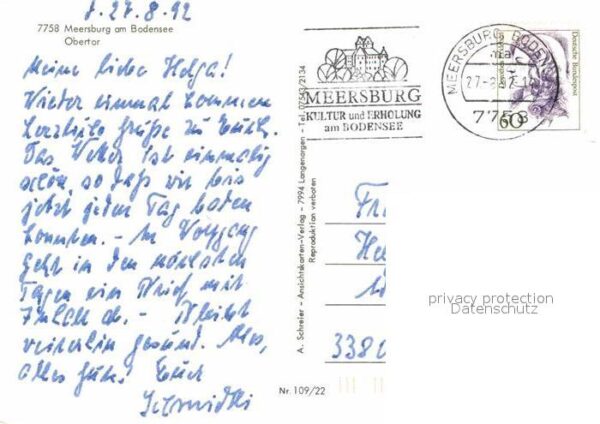 d. 27.8.92
7758 Meersburg am Bodensee
Obertor
Meine liebe Helga!
Wieder einmal kommen
herzliche Grüße zu Euch.
Das Wetter ist einmalig
schön, so daß wir bis
jetzt jeden Tag baden
konnten. - An Wolfgang
geht in den nächsten
Tagen ein Brief mit
ab. - Bleibt
weiterhin gesund. Alles,
alles Gute! Euch
MEERSBURG
KULTUR und ERHOLUNG
am BODENSEE
MEERSBURG, BODENSEE
27.-8.92-1
7758
60
Deutsche Bundespost
A. Schreier - Ansichtskarten-Verlag - 7994 Langenargen - Tel. 07543/2134
Reproduktion verboten
Fr
He
338
privacy protection
Datenschutz
Nr. 109/22